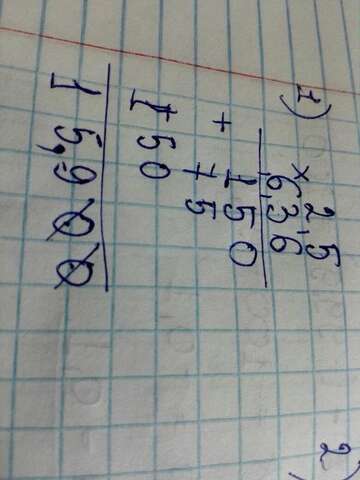 1) × 2,5 2)
6,36
150
+ 75
150
15,900